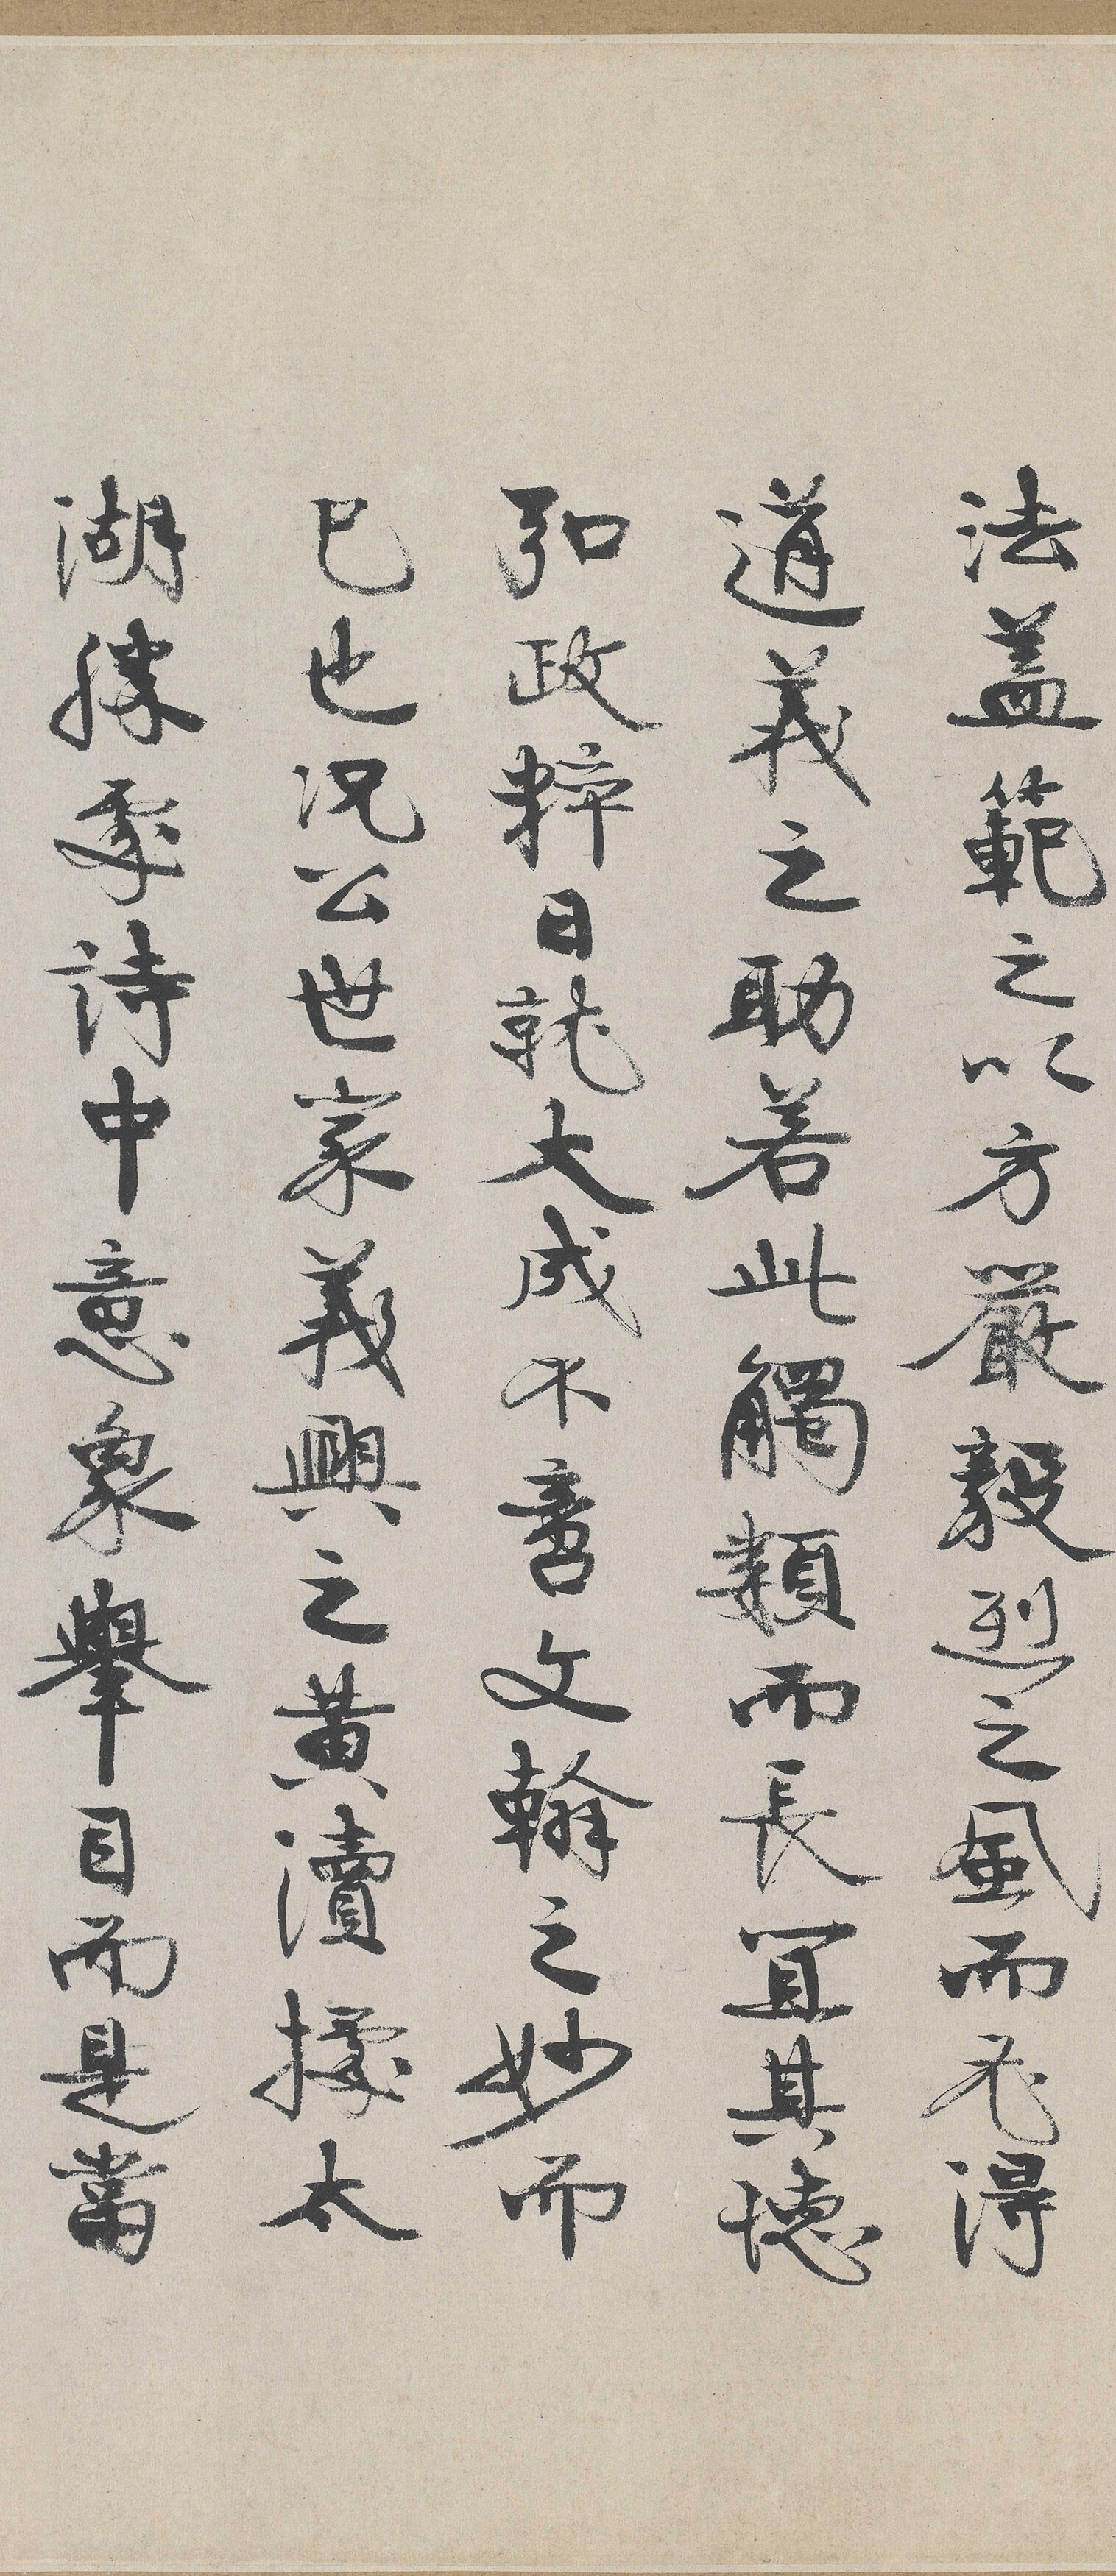 法蓋範之以方嚴毅烈之風而尤得
道義之助若此觸類而長宜其德
弘政粹日就大成不啻文翰之妙而
已也況公世家義興之黃瀆據太
湖勝處詩中意象舉目而是當